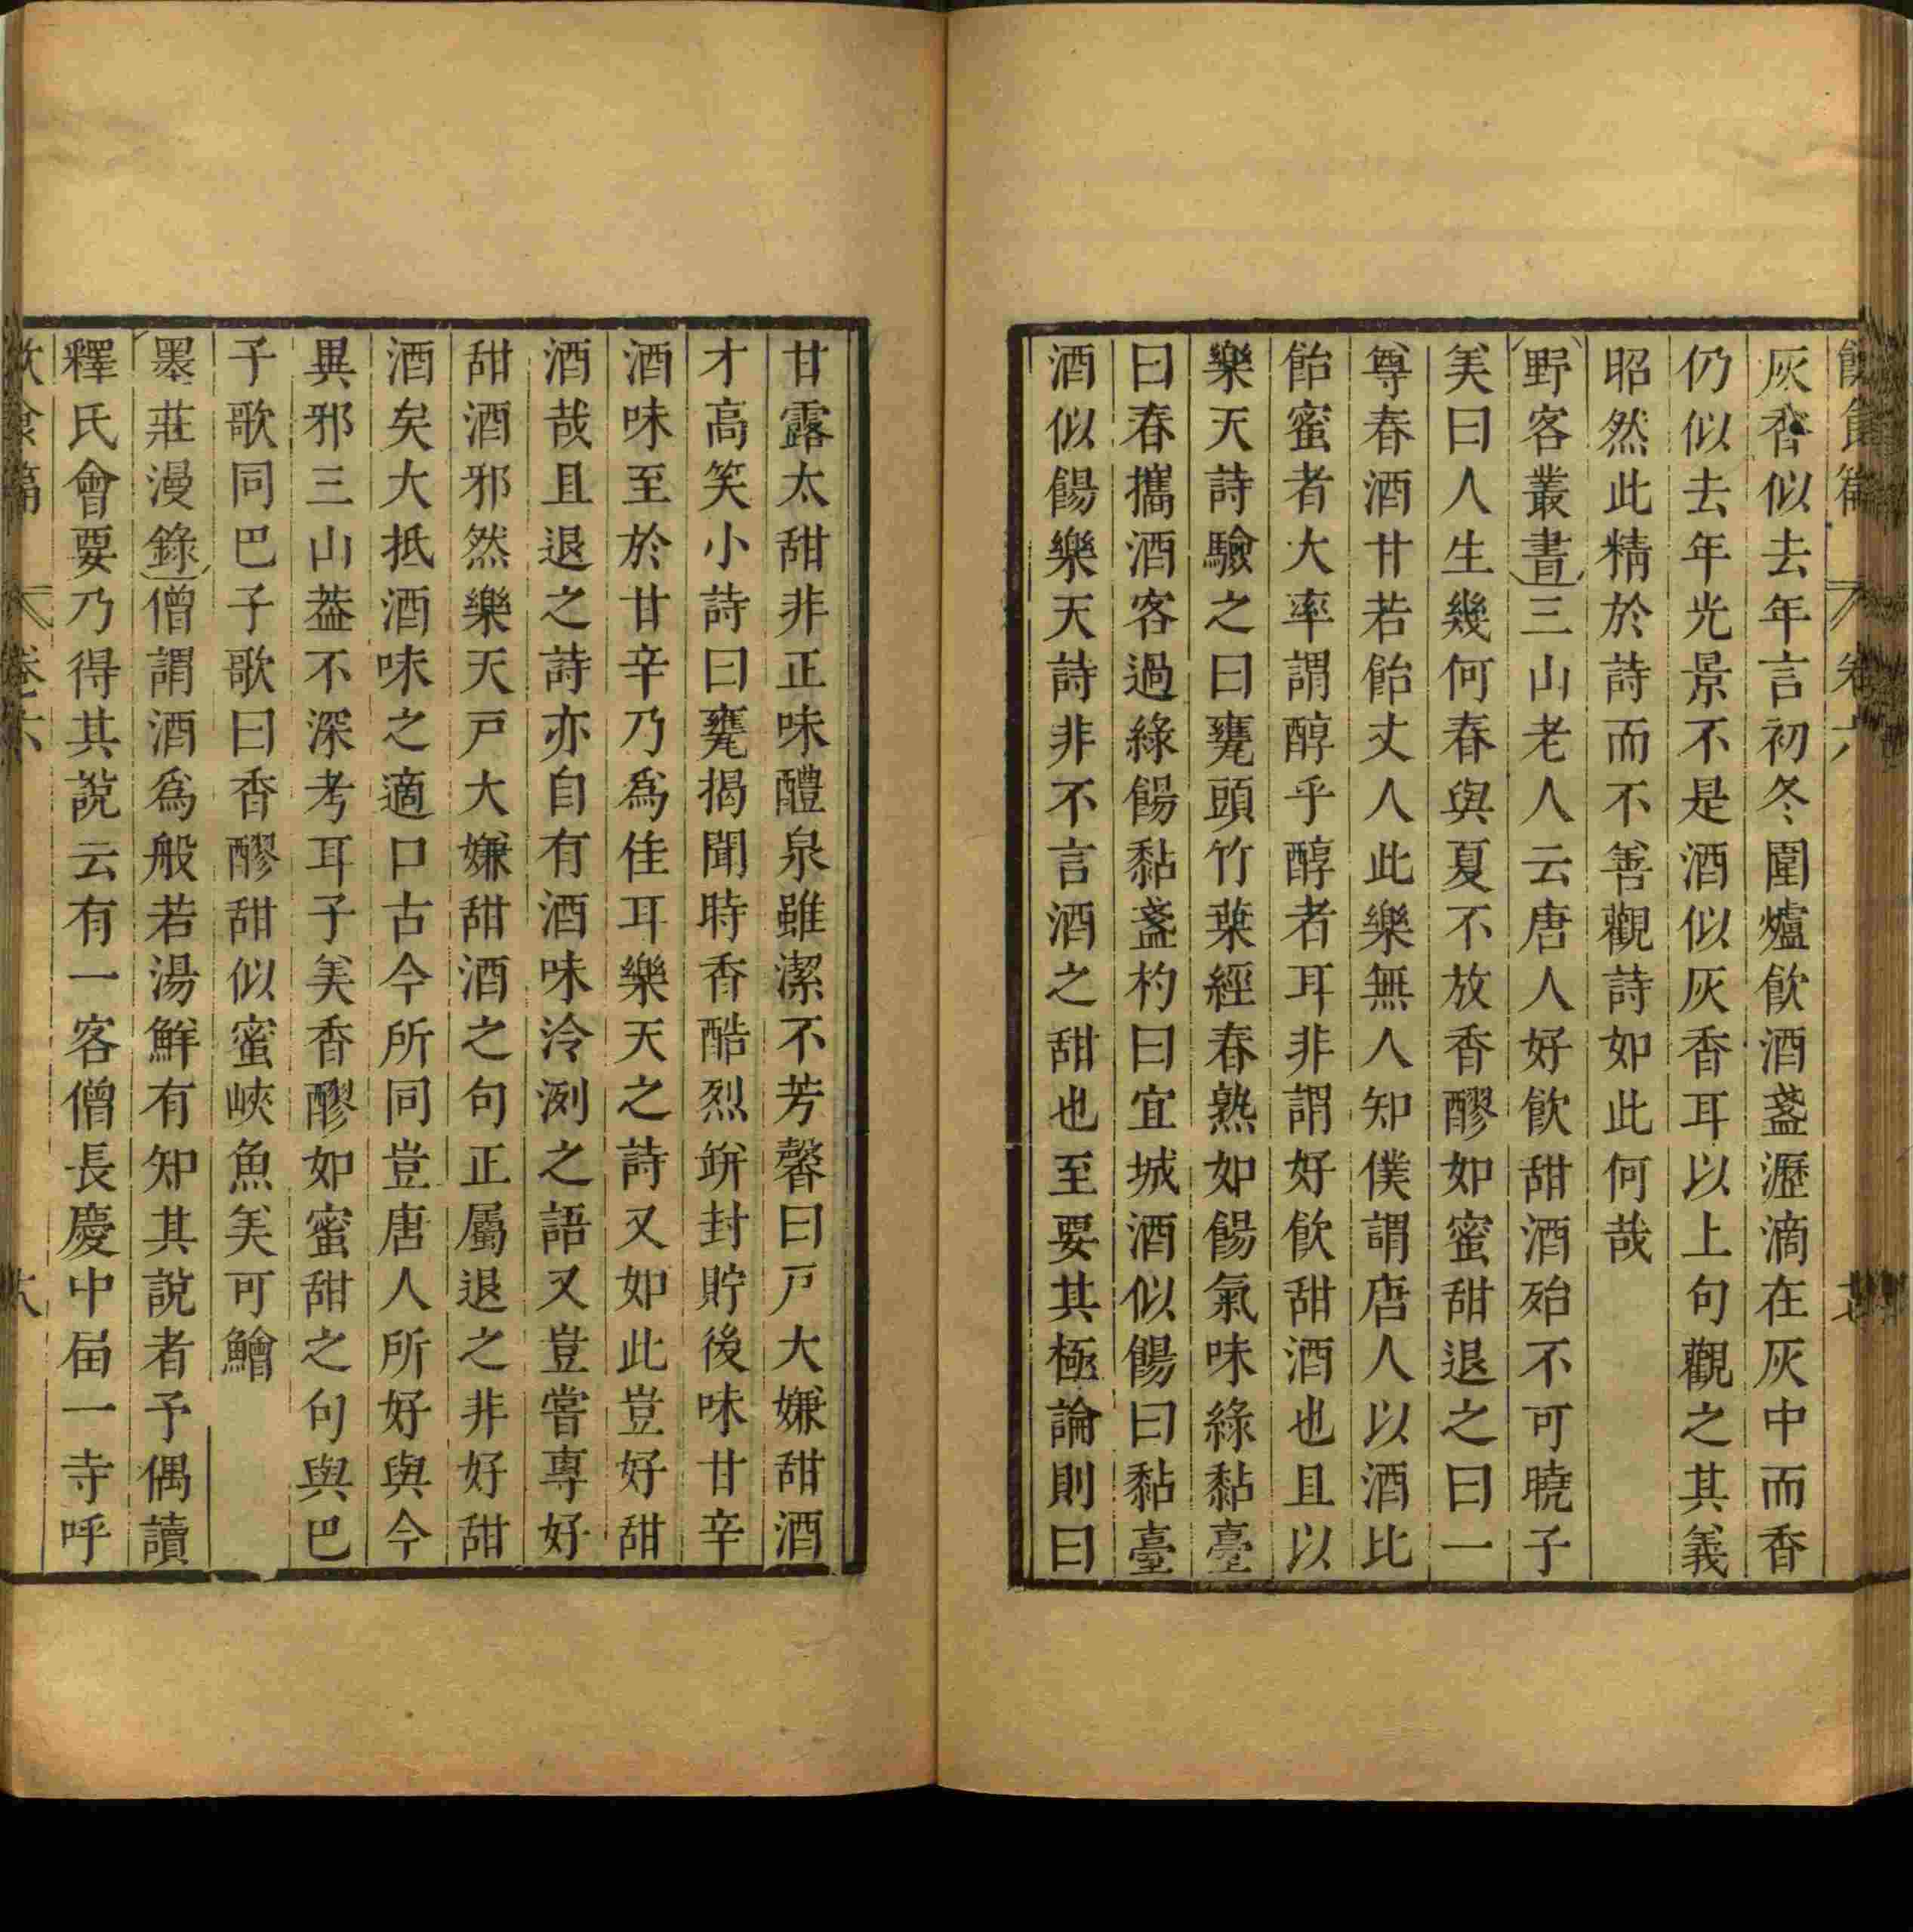 灰香似去年言初冬圍爐飲酒盞瀝滴在灰中而香
仍似去年光景不是酒似灰香耳以上句觀之其義
昭然此精於詩而不善觀詩如此何哉
野客叢書三山老人云唐人好飲甜酒殆不可曉子
美曰人生幾何春與夏不放香醪如蜜甜退之曰一
尊春酒甘若飴丈人此樂無人知僕謂唐人以酒比
飴蜜者大率謂醇乎醇者耳非謂好飲甜酒也且以
樂天詩驗之曰甕頭竹葉經春熟如餳氣味綠黏臺
曰春攜酒客過綠餳黏盞杓曰宜城酒似餳曰黏臺
酒似餳樂天詩非不言酒之甜也至要其極論則曰
甘露太甜非正味醴泉雖潔不芳馨曰戸大嫌甜酒
才高笑小詩曰甕揭聞時香酷烈缾封貯後味甘辛
酒味至於甘辛乃爲佳耳樂天之詩又如此豈好甜
酒哉且退之詩亦自有酒味泠洌之語又豈嘗專好
甜酒邪然樂天戸大嫌甜酒之句正屬退之非好甜
酒矣大抵酒味之適口古今所同豈唐人所好與今
異邪三山葢不深考耳子美香醪如蜜甜之句與巴
子歌同巴子歌曰香醪甜似蜜峽魚美可鱠
墨莊漫錄僧謂酒爲般若湯鮮有知其說者予偶讀
釋氏會要乃得其說云有一客僧長慶中届一寺呼